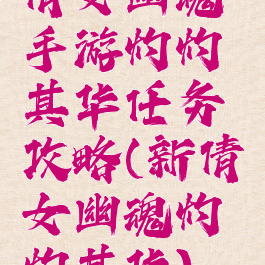 倩女幽魂
手游灼灼
其华任务
攻略(新倩
女幽魂灼
灼其华)